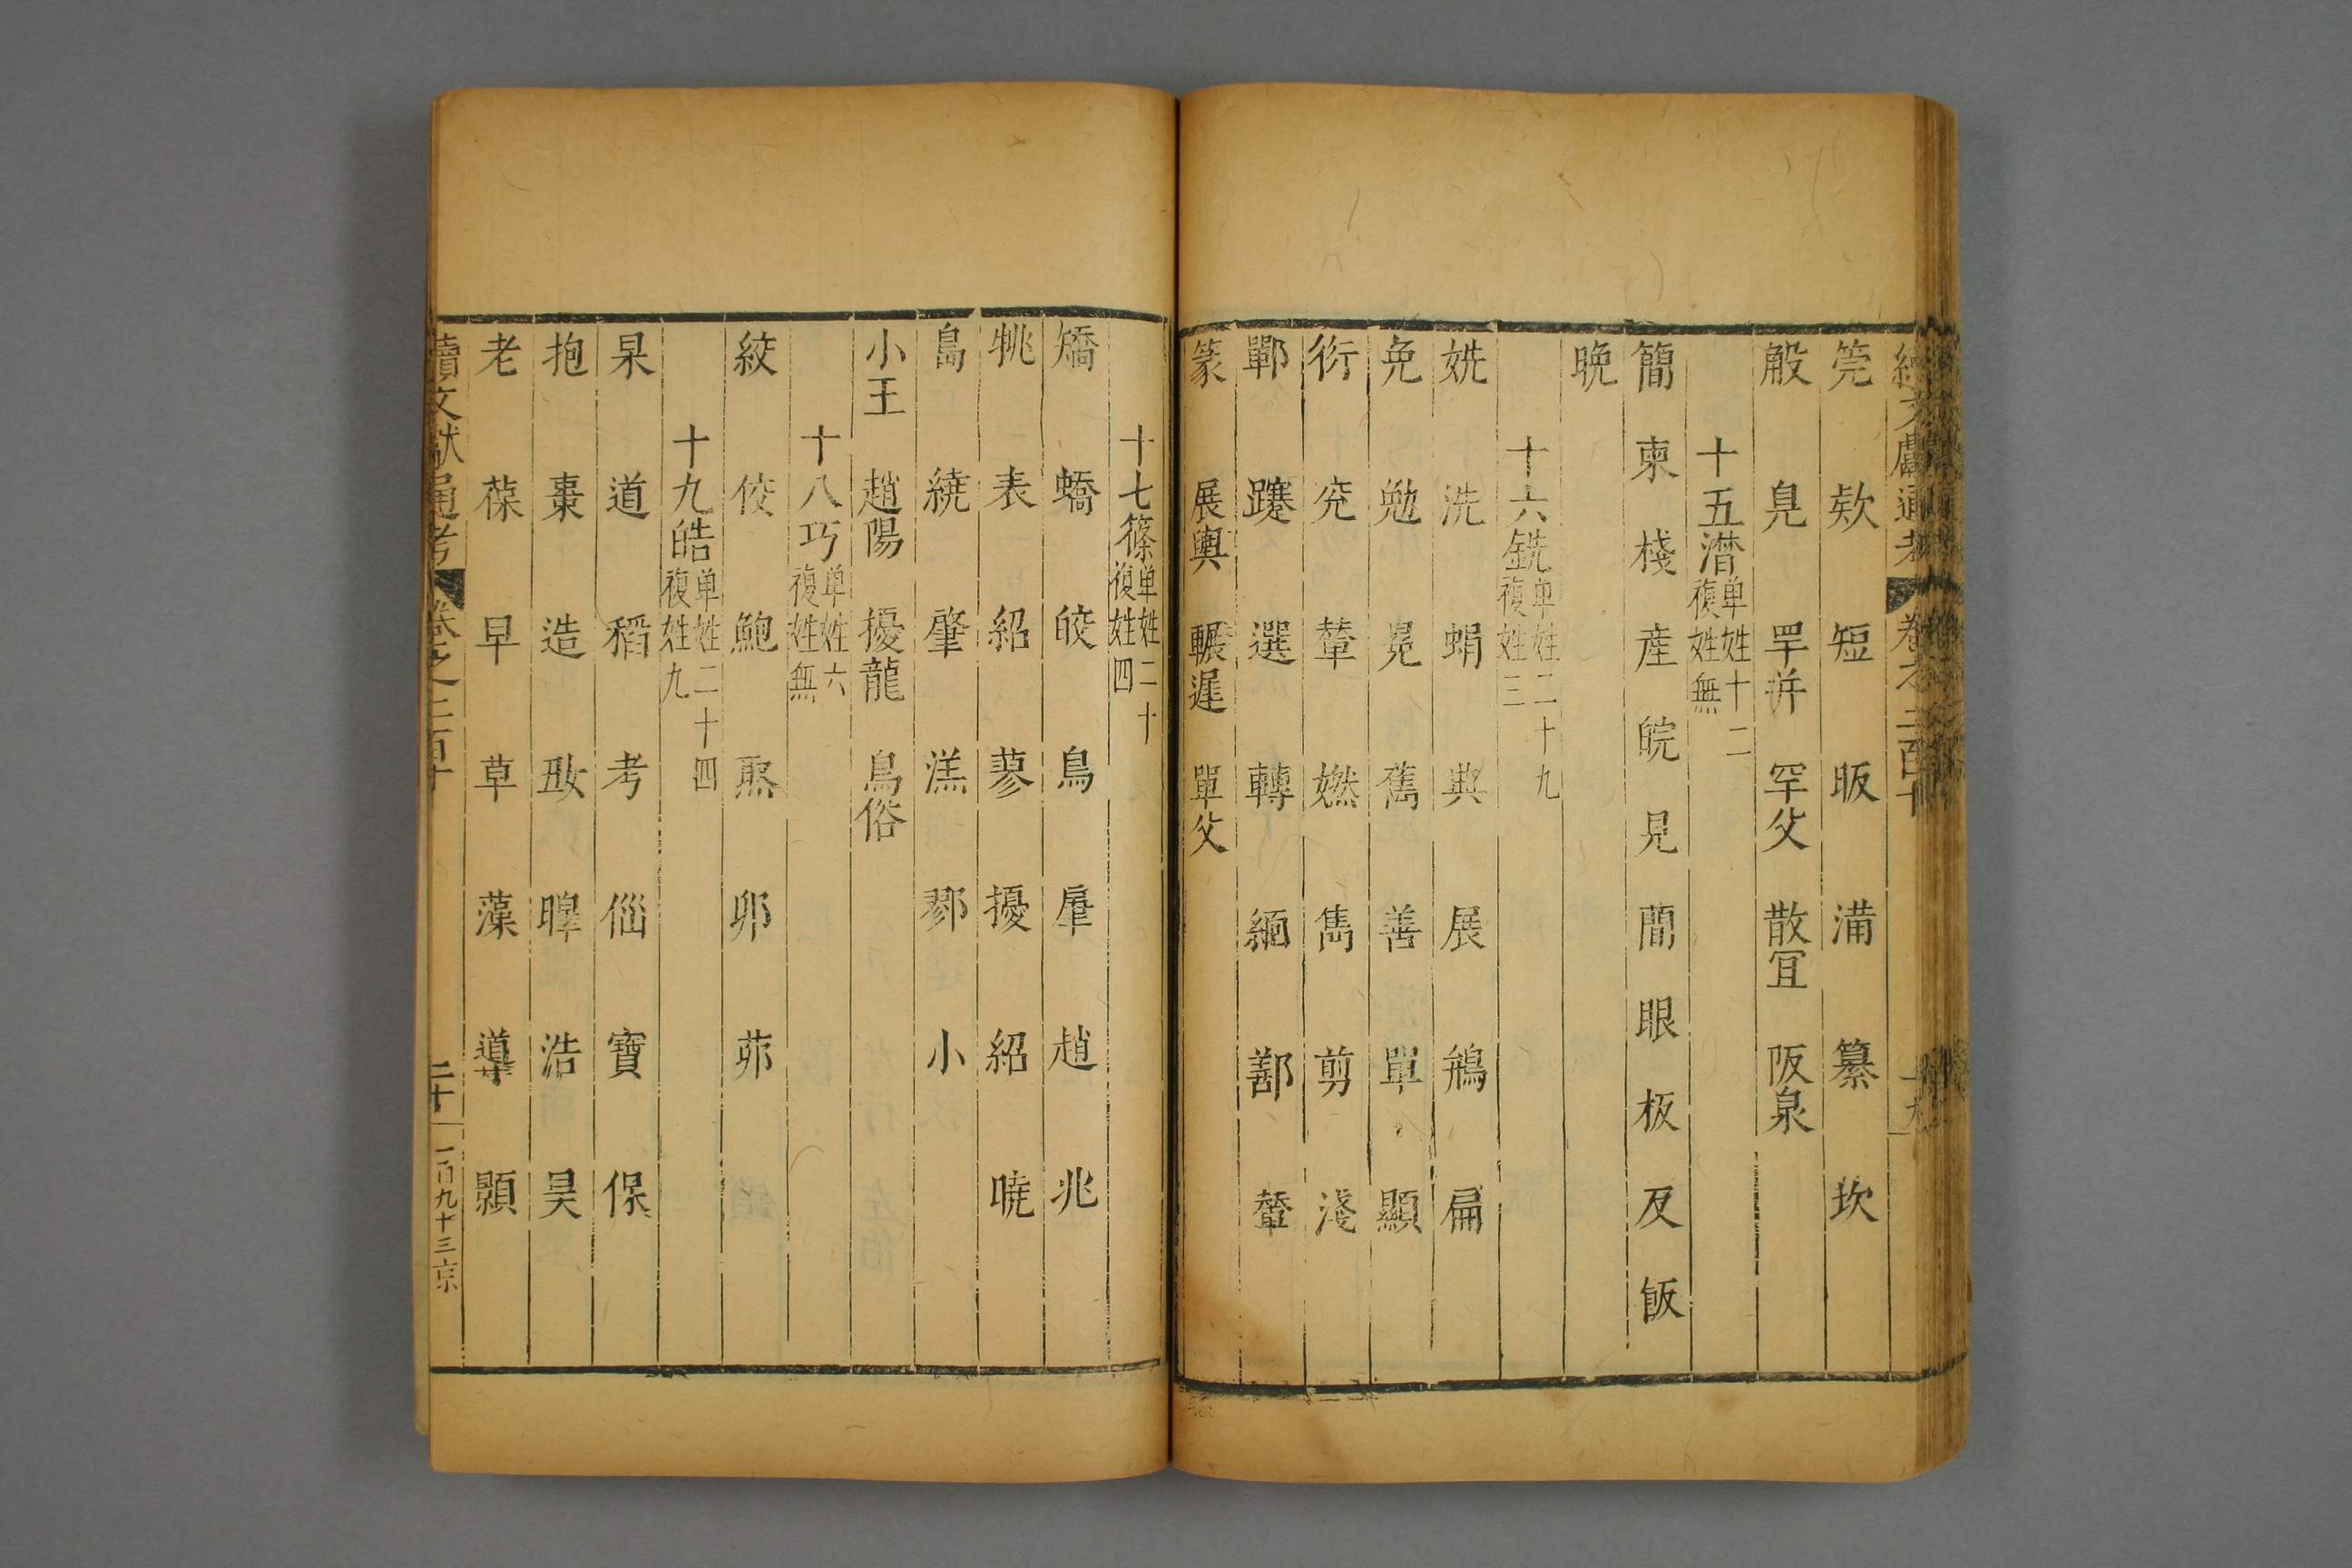 續文獻通考 卷之二百十
筦 欸 短 眅 满 纂 坎
般 䒵 罕幵 罕父 散宜 阪泉
十五潸 单姓十二 複姓無
簡 柬 棧 産 皖 見 蕑 眼 板 反 飯
晩
十六銑 单姓二十九 複姓三
姺 洗 蜎 典 展 鴘 扁
免 勉 冕 雋 善 單 顯
衍 兖 輦 嬮 雋 剪 淺
鄿 蹇 選 轉 緬 鄯 輦
篆 展輿 輾遲 單父
十七篠 单姓二十 複姓四
矯 蟜 皎 鳥 肇 趙 兆
㹦 表 紹 蓼 擾 紹 曉
島 繞 肈 㵿 鄝 小
小王 趙陽 擾龍 鳥俗
十八巧 单姓六 複姓無
絞 佼 鮑 㷅 卯 茆
十九皓 单姓二十四 複姓九
杲 道 稻 考 㑳 寶 保
抱 棗 造 㚥 暤 浩 昊
老 葆 早 草 藻 導 顥
續文獻通考 卷之二百十 二十 一百九十三 京